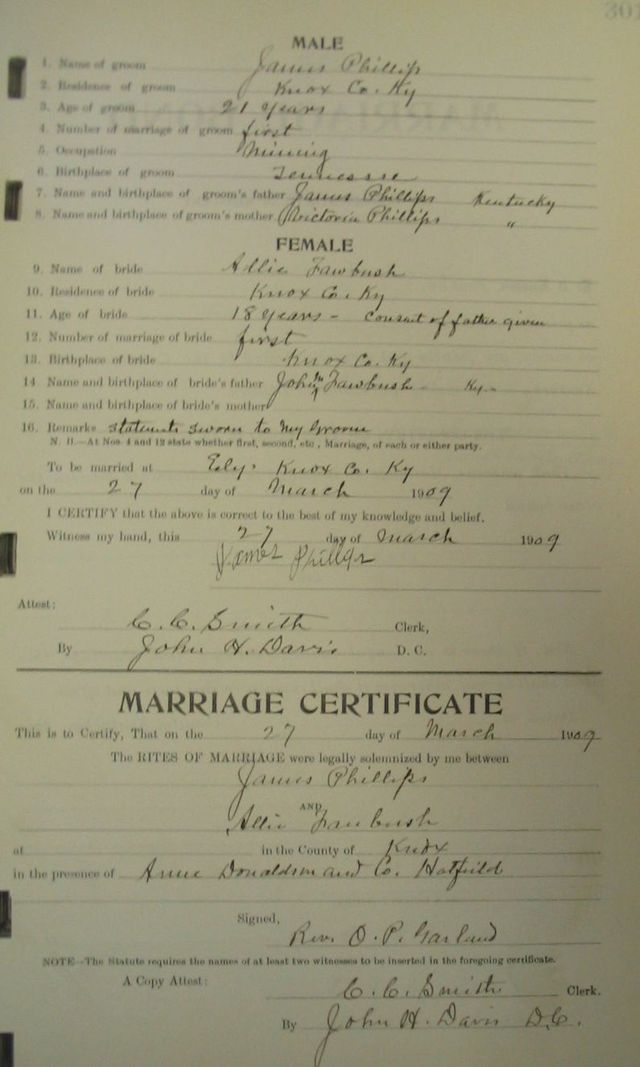 301
MALE
1. Name of groom James Phillips
2. Residence of groom Knox Co. Ky
3. Age of groom 21 years
4. Number of marriage of groom first
5. Occupation Mining
6. Birthplace of groom Tennessee
7. Name and birthplace of groom's father James Phillips Kentucky
8. Name and birthplace of groom's mother Victoria Phillips "
FEMALE
9. Name of bride Allie Fawbush
10. Residence of bride Knox Co. Ky
11. Age of bride 18 years - consent of father given
12. Number of marriage of bride first
13. Birthplace of bride Knox Co. Ky
14 Name and birthplace of bride's father John M Fawbush - Ky -
15. Name and birthplace of bride's mother
16. Remarks Statements sworn to by Groom
N. B.—At Nos. 4 and 12 state whether first, second, etc., Marriage, of each or either party.
To be married at Ely, Knox Co. Ky
on the 27 day of March 1909
I CERTIFY that the above is correct to the best of my knowledge and belief.
Witness my hand, this 27 day of March 1909
James Phillips
Attest:
C. C. Smith Clerk,
By John H. Davis D. C.
MARRIAGE CERTIFICATE
This is to Certify, That on the 27 day of March 1909
The RITES OF MARRIAGE were legally solemnized by me between
James Phillips
AND
Allie Fawbush
at in the County of Knox
in the presence of Anne Donaldson and Co. Hatfield
Signed,
Rev. O. P. Garland
NOTE—The Statute requires the names of at least two witnesses to be inserted in the foregoing certificate.
A Copy Attest:
C. C. Smith Clerk.
By John H. Davis D.C.